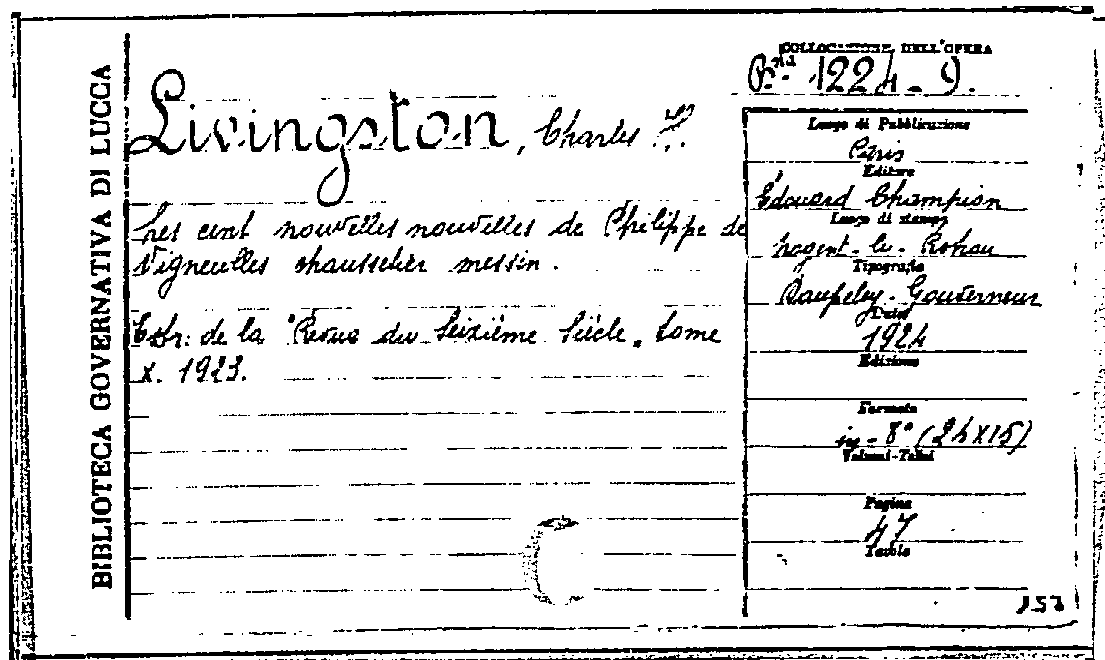 BIBLIOTECA GOVERNATIVA DI LUCCA
COLLOCAZIONE DELL'OPERA
B.ta 1224-9.
Livingston, Charles H.
Les cent nouvelles nouvelles de Philippe de
Vigneulles chaussetier messin.
Estr. de la Revue du Seizième Siècle, tome
X. 1923.
Luogo di Pubblicazione
Paris
Editore
Édouard Champion
Luogo di stampa
Nogent-le-Rotrou
Tipografia
Daupeley-Gouverneur
Data
1924
Edizione
Formato
in-8° (24X15)
Volumi-Tomi
Pagine
47
Tavole